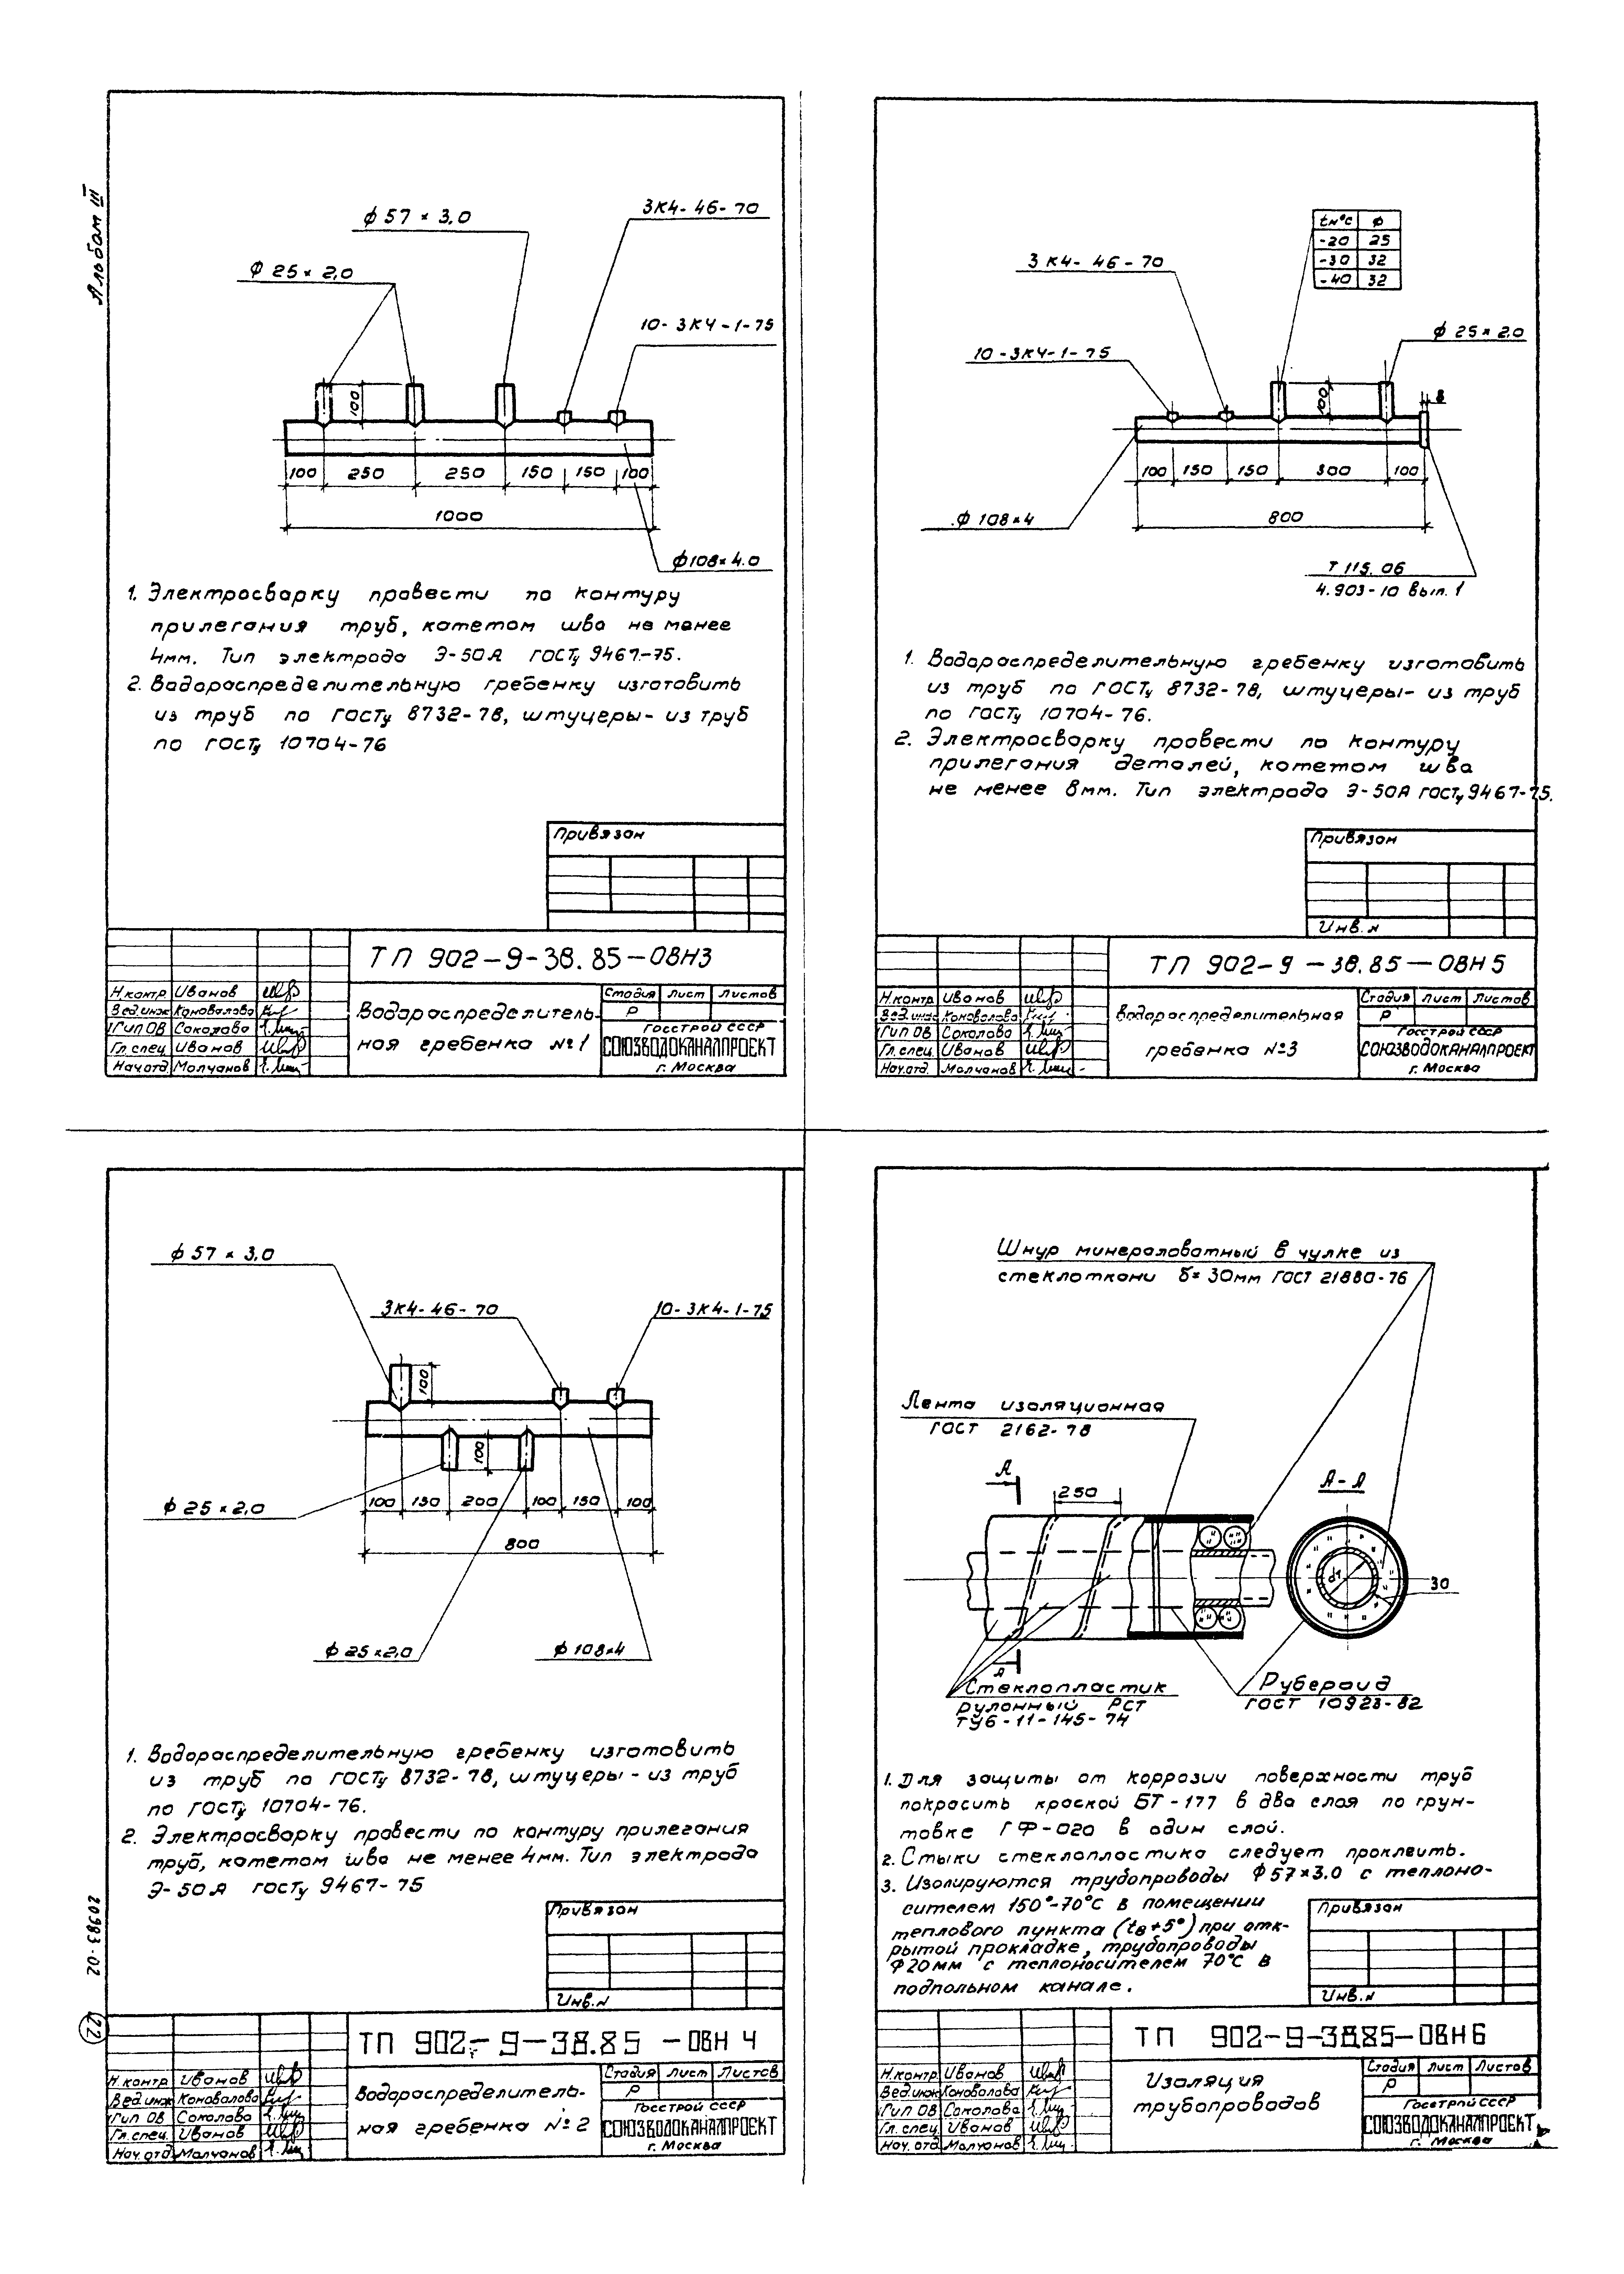 Альбом III
ф 57 × 3,0
3К4-46-70
ф 25 × 2,0
10-3К4-1-75
100
100 250 250 150 150 100
1000
ф108×4.0
1. Электросварку провести по контуру
прилегания труб, катетом шва не менее
4мм. Тип электрода Э-50А ГОСТу 9467-75.
2. Водораспределительную гребенку изготовить
из труб по ГОСТу 8732-78, штуцеры- из труб
по ГОСТу 10704-76
Привязан
ТП 902-9-38.85-ОВН3
Н.контр. Иванов
Вед.инж. Коновалова
ГИП ОВ Соколова
Гл.спец. Иванов
Нач.отд Молчанов
Водораспределитель-
ная гребенка №1
Стадия Лист Листов
Р
Госстрой СССР
СОЮЗВОДОКАНАЛПРОЕКТ
г. Москва
tн°С ф
-20 25
-30 32
-40 32
3К4-46-70
ф 25×2,0
10-3К4-1-75
100
8
100 150 150 300 100
ф 108×4
800
Т 115.06
4.903-10 вып.1
1. Водораспределительную гребенку изготовить
из труб по ГОСТу 8732-78, штуцеры- из труб
по ГОСТу 10704-76.
2. Электросварку провести по контуру
прилегания деталей, катетом шва
не менее 8мм. Тип электрода Э-50А ГОСТу 9467-75.
Привязан
Инв.н
ТП 902-9-38.85-ОВН5
Н.контр. Иванов
Вед.инж Коновалова
ГИП ОВ Соколова
Гл.спец. Иванов
Нач.отд. Молчанов
Водораспределительная
гребенка №3
Стадия Лист Листов
Р
Госстрой СССР
СОЮЗВОДОКАНАЛПРОЕКТ
г. Москва
ф 57 × 3,0
3К4-46-70
10-3К4-1-75
100
100
ф 25 × 2,0
100 150 200 100 150 100
800
ф 25×2,0
ф 108×4
1. Водораспределительную гребенку изготовить
из труб по ГОСТу 8732-78, штуцеры - из труб
по ГОСТу 10704-76.
2. Электросварку провести по контуру прилегания
труб, катетом шва не менее 4мм. Тип электрода
Э-50А ГОСТу 9467-75
20983-02
22
Привязан
Инв.н
ТП 902-9-38.85-ОВН 4
Н.контр. Иванов
Вед.инж Коновалова
ГИП ОВ Соколова
Гл.спец. Иванов
Нач.отд Молчанов
Водораспределитель-
ная гребенка №2
Стадия Лист Листов
Р
Госстрой СССР
СОЮЗВОДОКАНАЛПРОЕКТ
г. Москва
Шнур минераловатный в чулке из
стеклоткани δ=30мм ГОСТ 21880-76
Лента изоляционная
ГОСТ 2162-78
А
250
А-А
d1
30
А
Стеклопластик
рулонный РСТ
ТУ6-11-145-74
Рубероид
ГОСТ 10923-82
1. Для защиты от коррозии поверхности труб
покрасить краской БТ-177 в два слоя по грун-
товке ГФ-020 в один слой.
2. Стыки стеклопластика следует проклеить.
3. Изолируются трубопроводы ф57×3.0 с теплоно-
сителем 150°-70°С в помещении
теплового пункта (tв+5°) при отк-
рытой прокладке, трубопроводы
ф20мм с теплоносителем 70°С в
подпольном канале.
Привязан
Инв.н
ТП 902-9-38.85-ОВН6
Н.контр. Иванов
Вед.инж Коновалова
ГИП ОВ Соколова
Гл.спец. Иванов
Нач.отд Молчанов
Изоляция
трубопроводов
Стадия Лист Листов
Р
Госстрой СССР
СОЮЗВОДОКАНАЛПРОЕКТ
г. Москва